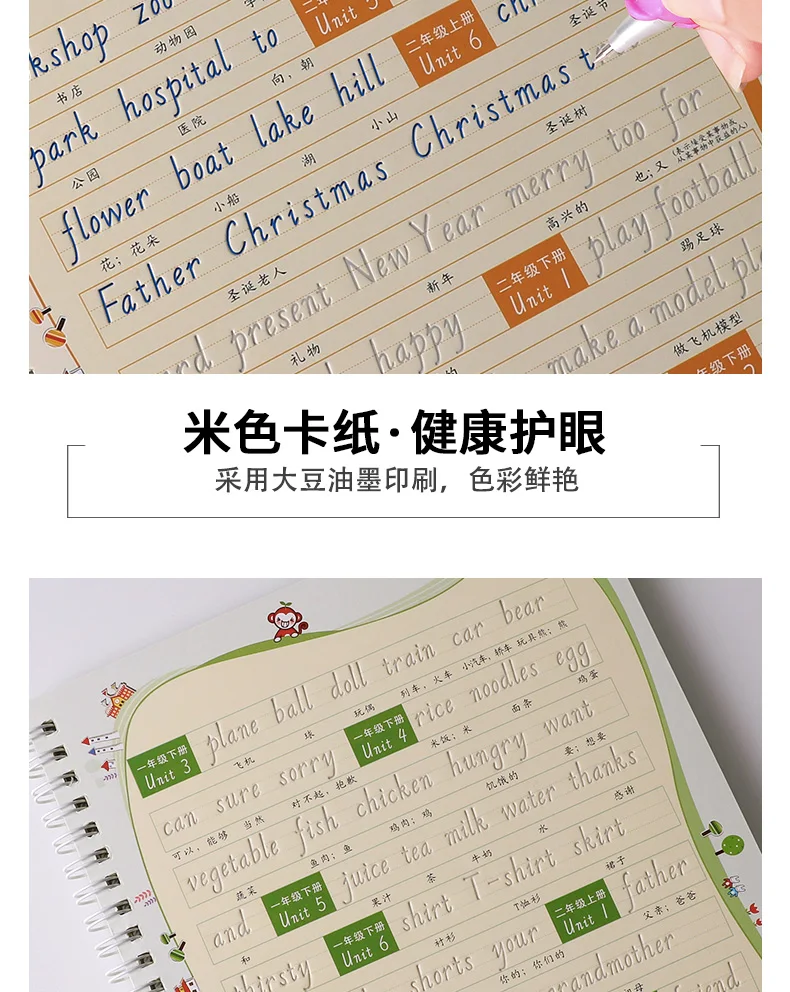 kshop zoo
书店 动物园
二年级上册
Unit 6
圣诞节
park hospital to
公园 医院 向，朝
flower boat lake hill
花；花朵 小船 湖 小山
Father Christmas Christmas
圣诞老人 圣诞树
present New Year merry too for
礼物 新年 高兴的 也；又 (表示接受某事物或
从某事物中获益的人)
happy
二年级下册
Unit 1
play football
踢足球
make a model
做飞机模型
年级下册
米色卡纸·健康护眼
采用大豆油墨印刷，色彩鲜艳
一年级下册
Unit 3
plane ball doll train car bear
飞机 球 玩偶 列车，火车 小汽车，轿车 玩具熊；熊
can sure sorry
一年级下册
Unit 4
rice noodles egg
可以，能够 当然 对不起，抱歉 米饭；米 面条 鸡蛋
vegetable fish chicken hungry want
蔬菜 鱼肉；鱼 鸡肉；鸡 饥饿的 要；想要
and
一年级下册
Unit 5
juice tea milk water thanks
和 果汁 茶 牛奶 水 感谢
thirsty
一年级下册
Unit 6
shirt T-shirt skirt
衬衫 T恤衫 裙子
shorts your
二年级上册
Unit 1
father
你的；你们的 父亲；爸爸
grandmother